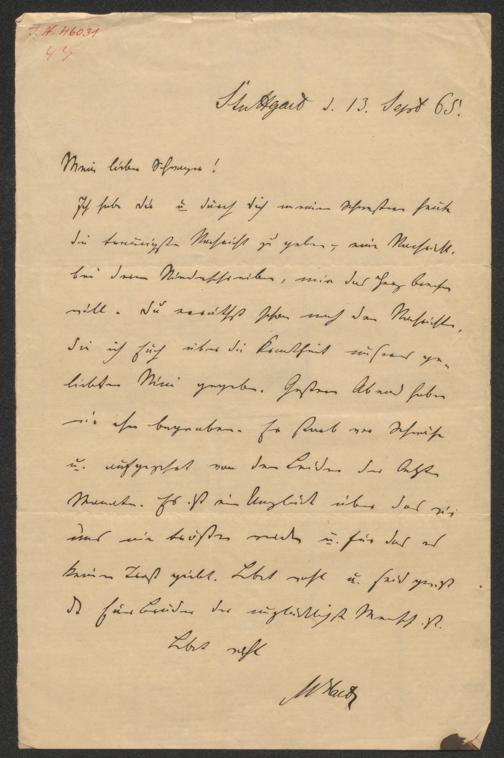 I. N. 46031
44
Stuttgart d. 13. Sept 65.
Mein lieber Schwager!
Ich habe dir u durch dich meiner Schwester heute
die traurigste Nachricht zu geben, eine Nachricht,
bei deren Niederschreiben, mir das Herz brechen
will. Du erräthst schon nach den Nachrichten,
die ich Euch über die Krankheit unseres ge-
liebten Mini gegeben. Gestern Abend haben
wir ihn begraben. Er starb vor Schwäche
u. aufgezehrt von den Leiden der letzten
Monate. Es ist ein Unglück über das wir
uns nie trösten werden u. für das es
keinen Trost giebt. Lebet wohl u. seid gewiß
daß Euer Bruder der unglücklichste Mensch ist.
Lebet wohl